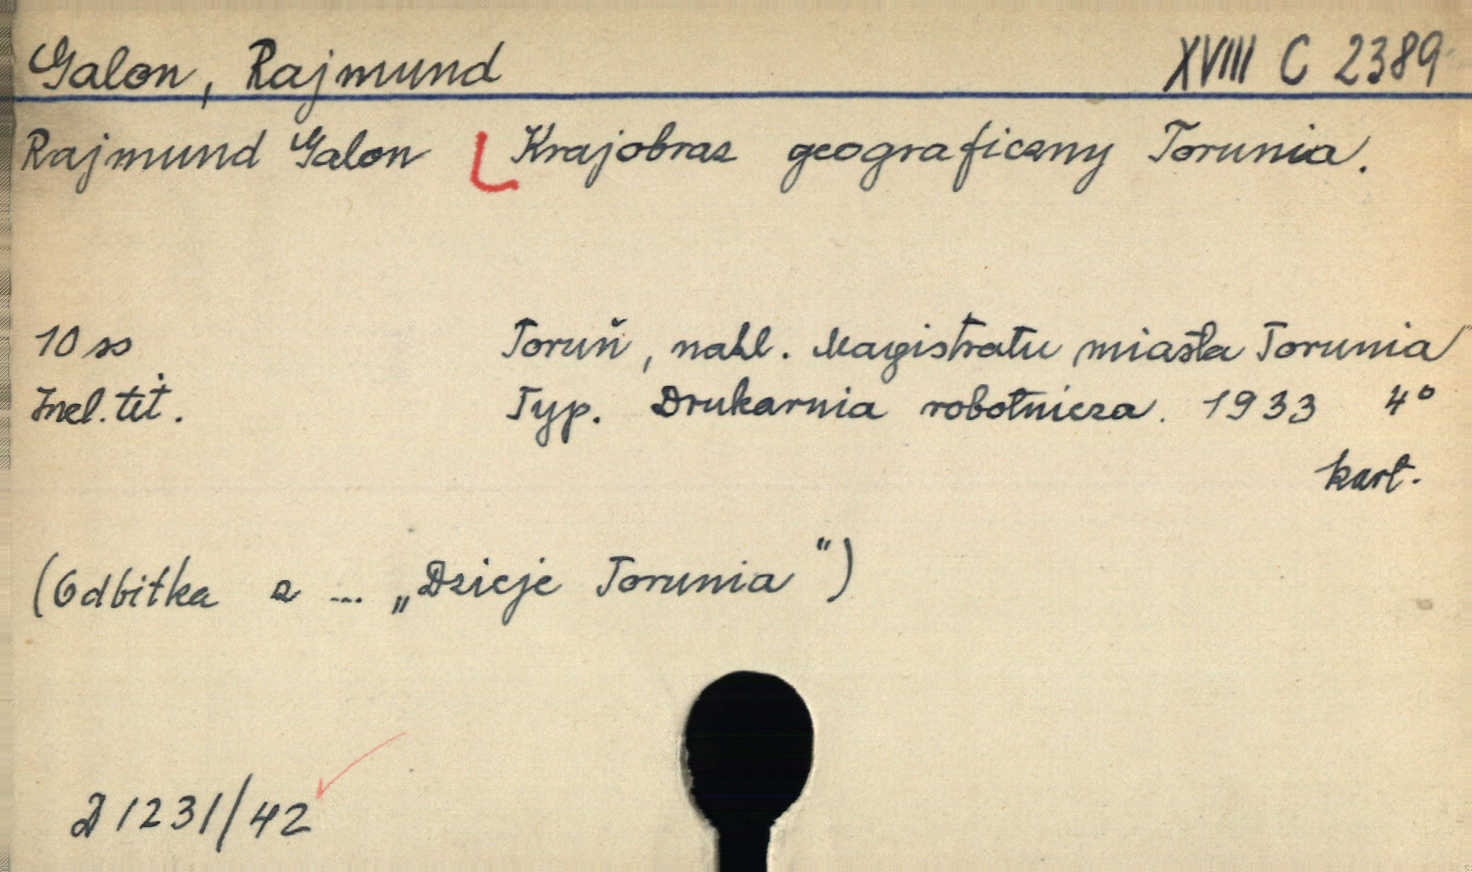 Galon, Rajmund XVIII C 2389
Rajmund Galon Krajobraz geograficzny Torunia.
10 ss Toruń, nakl. Magistratu miasta Torunia
Incl. tit. Typ. Drukarnia robotnicza. 1933 4°
kart.
(Odbitka z ... „Dzieje Torunia")
D 1231/42